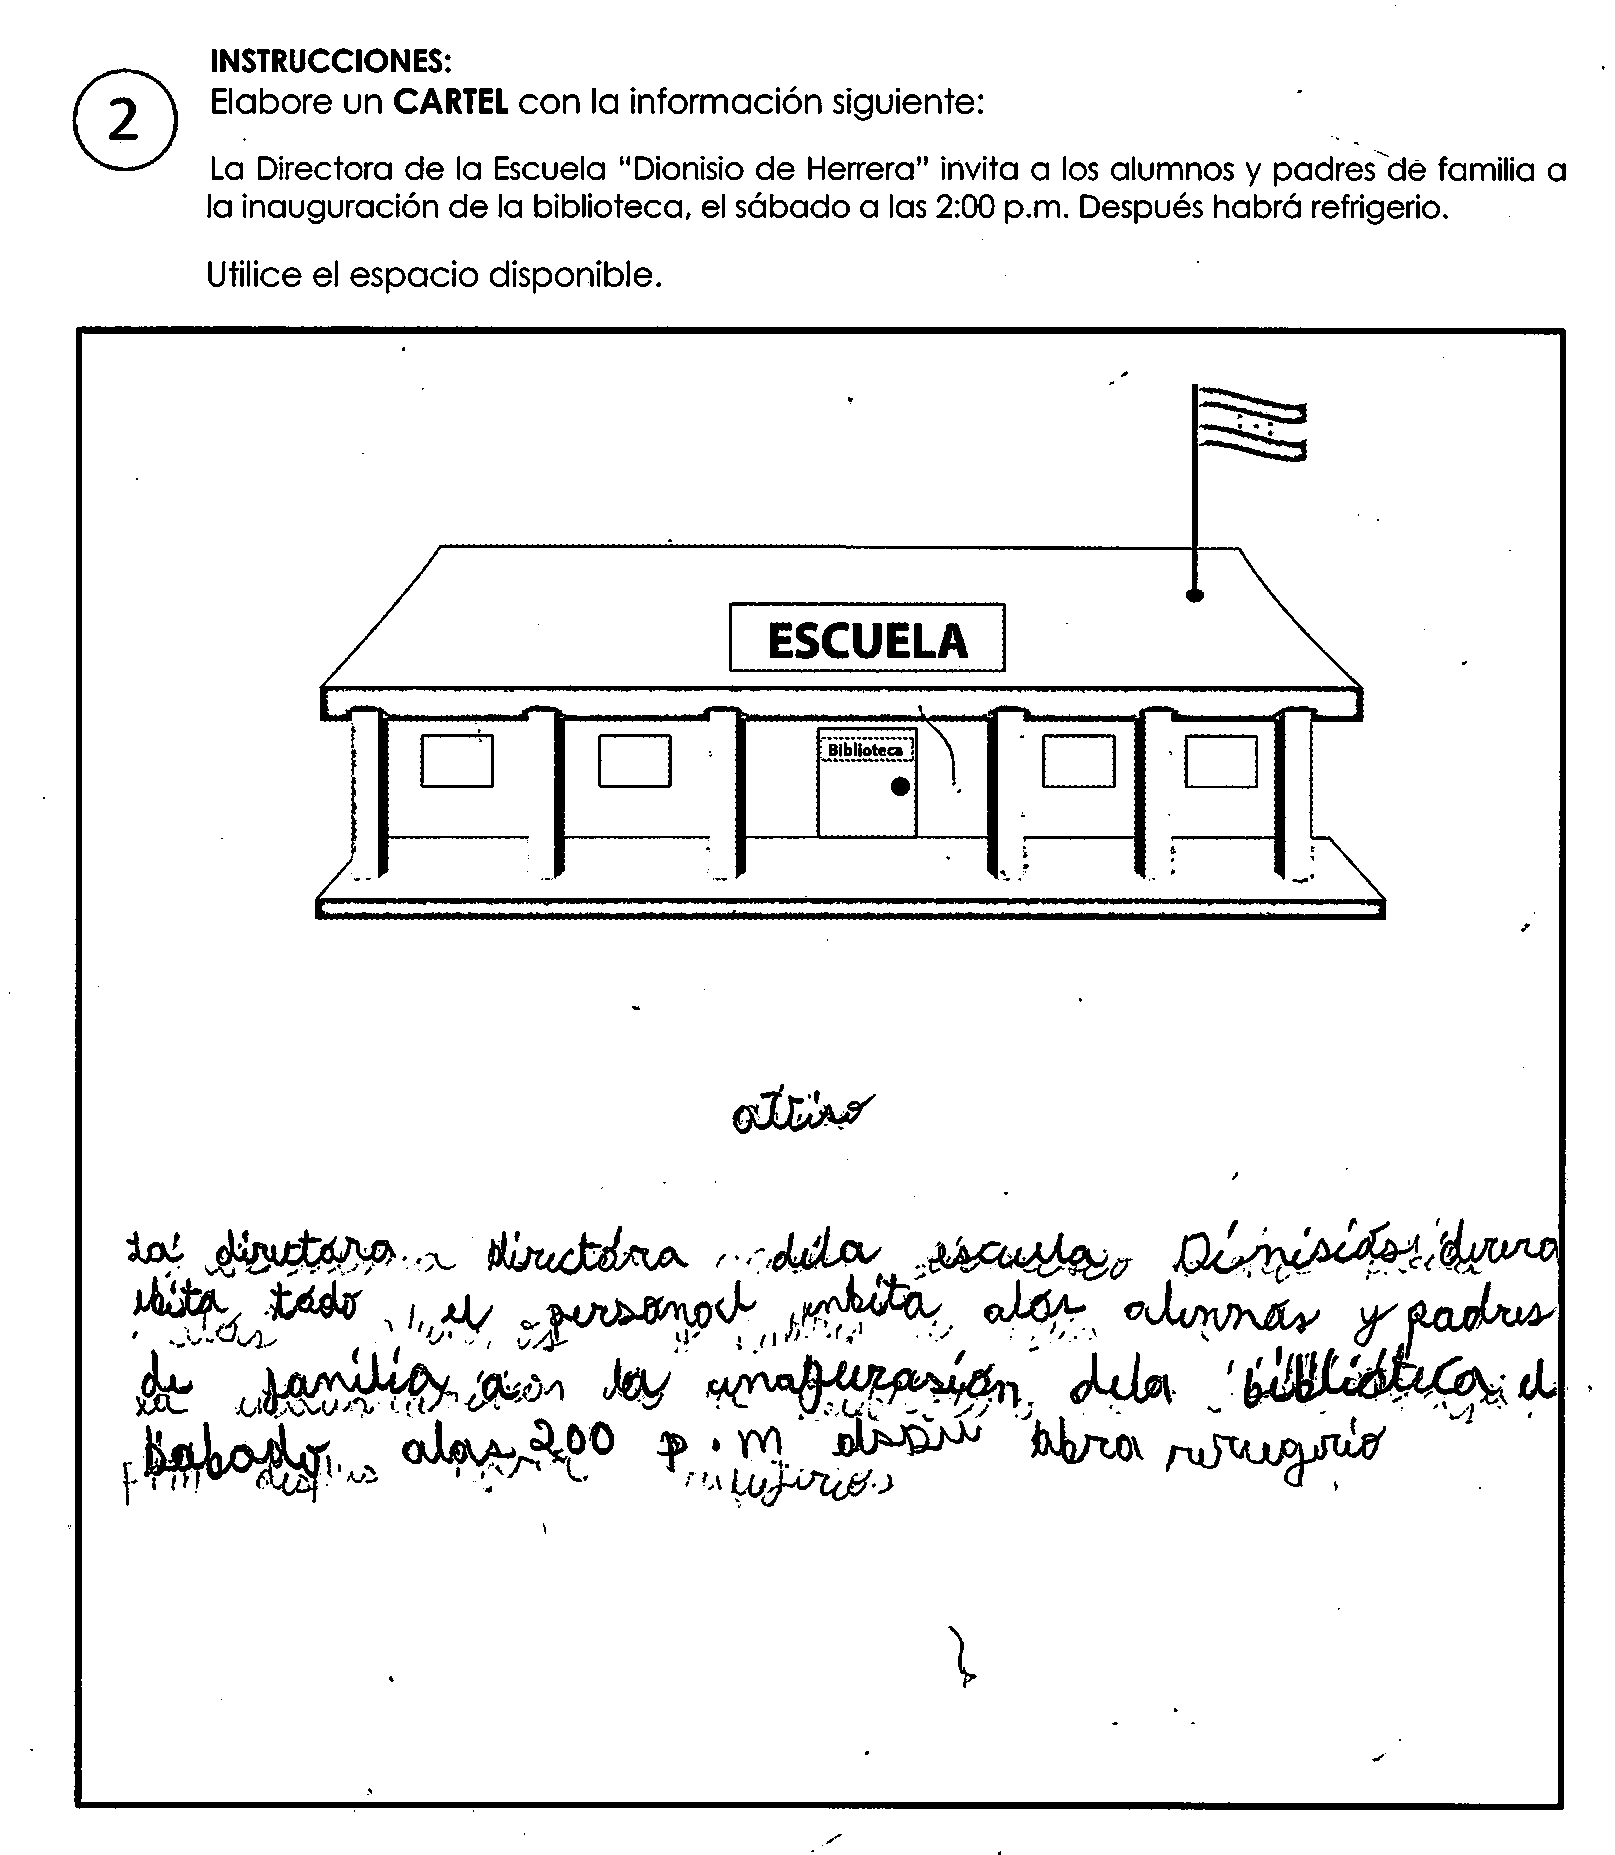 INSTRUCCIONES:
2
Elabore un CARTEL con la información siguiente:
La Directora de la Escuela "Dionisio de Herrera" invita a los alumnos y padres de familia a
la inauguración de la biblioteca, el sábado a las 2:00 p.m. Después habrá refrigerio.
Utilice el espacio disponible.
ESCUELA
Biblioteca
la directora directora dela escuela
todo el personal inbita alos alunnos y padres
de familia a la dela biblioteca el
sabado alas 200 p.m abra